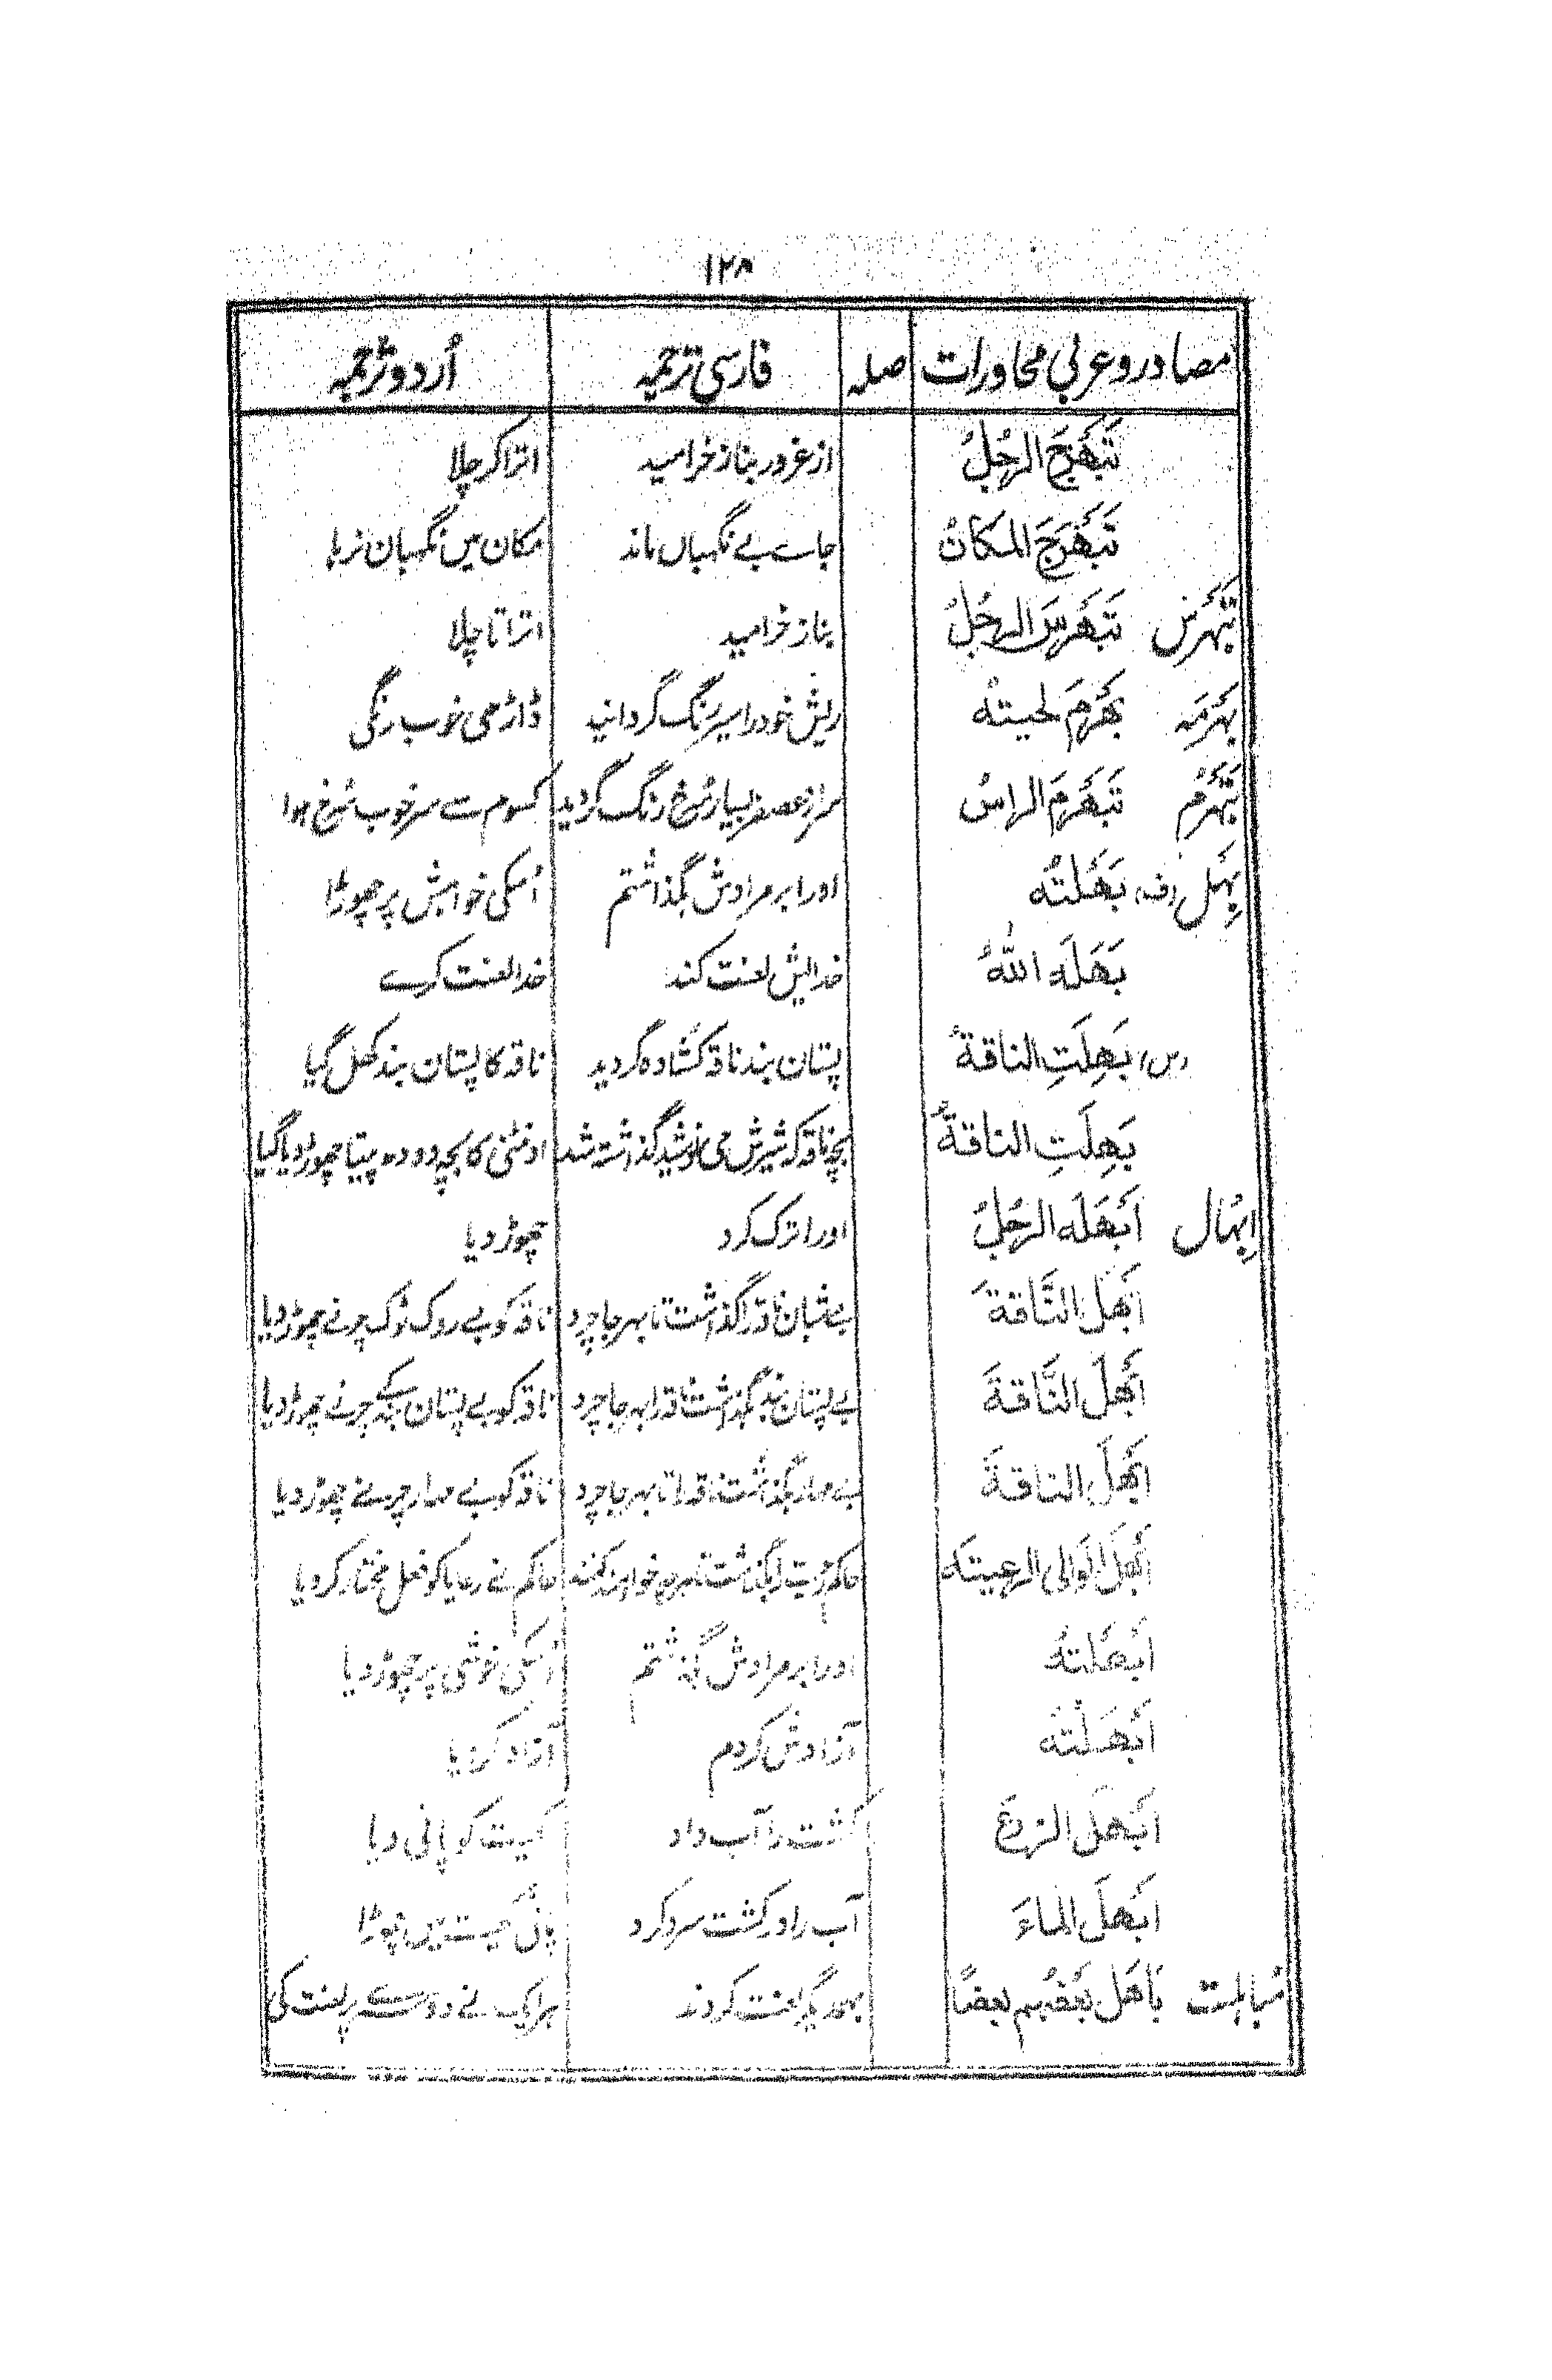 ۱۲۸
مصادر و عربی محاورات صلہ فارسی ترجمہ اُردو ترجمہ
تَبَهْرَجَ الرجُلُ از غرور بناز خرامید اتراکر چلا
تَبَهْرَجَ المکانُ جاے بے نگہباں ماند مکان میں نگہبان نرہا
تَبَهْرُس تَبَهْرَسَ الرجُلُ بناز خرامید اتراتا چلا
بَهْرَمَہ بَهْرَمَ لحیتهُ ریش خود را سیر رنگ گردانید ڈاڑھی خوب رنگی
تَبَهْرُم تَبَهْرَمَ الراسُ سر از عصفر بسیار سُرخ رنگ گردید کسوم سے سر خوب سُرخ ہوا
بَهْل (ف) بَهَلتُه اورا بر مرادش بگذاشتم اُسکی خواہش پر چھوڑا
بَهَلَه اللهُ خدایش لعنت کند خدا لعنت کرے
(س) بَهِلَتِ الناقةُ پستان بند ناقہ کشادہ گردید ناقہ کا پستان بند کھل گیا
بَهِلَتِ الناقةُ بچہ ناقہ کہ شیرش می نوشید گذاشتہ شد اونٹنی کا بچہ دودھ پیتا چھوڑ دیا گیا
اِبْهال اَبْهَلَه الرجُلُ اورا ترک کرد چھوڑ دیا
اَبْهَلَ النَّاقةَ بے شبان ناقہ را گذاشت تا بہر جا چرد ناقہ کو بے روک ٹوک چرنے چھوڑ دیا
اَبْهَلَ النَّاقةَ بے پستان بند بگذاشت ناقہ را بہر جا چرد ناقہ کو بے پستان بند کے چرنے چھوڑ دیا
اَبْهَلَ الناقةَ بے مہار بگذاشت ناقہ را تا بہر جا چرد ناقہ کو بے مہار چرنے چھوڑ دیا
اَبْهَلَ الوَالی الرعیتَه حاکم رعیت را بگذاشت تا ہرچہ خواہند کنند حاکم نے رعایا کو فعل مختار کر دیا
اَبْهَلتُهُ اورا بر مرادش بگذاشتم اُسکی خوشی پر چھوڑ دیا
اَبْهَلْتُه آزادش کردم آزاد کر دیا
اَبْهَلَ الزرعَ کشت را آب داد کھیت کو پانی دیا
اَبْهَلَ الماءَ آب را در کشت سر د کرد پانی کھیت میں چھوڑا
مُباہلت بَاهَلَ بَعْضُهم بعضًا بہمدیگر لعنت کردند ہر ایک نے دوسرے پر لعنت کی